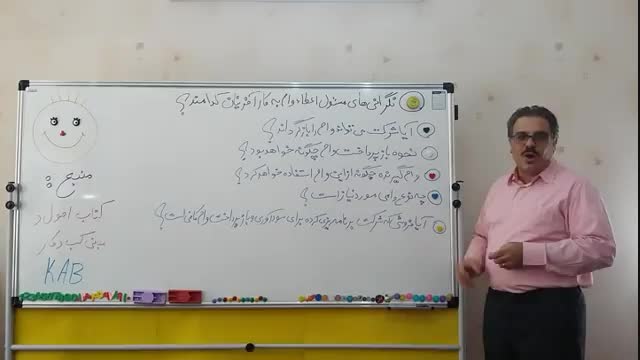 نگرانی‌های مسئول اعطاء وام به کارآفرینان کدامند؟
آیا شرکت می تواند وام را بازگرداند؟
نحوه بازپرداخت وام چگونه خواهد بود؟
وام گیرنده چگونه از این وام استفاده خواهد کرد؟
چه نوع وامی مورد نیاز است؟
آیا فروشی که شرکت برنامه ریزی کرده برای سودآوری و بازپرداخت وام کافی است؟
منبع:
کتاب اصول
کسب و کار
KAB